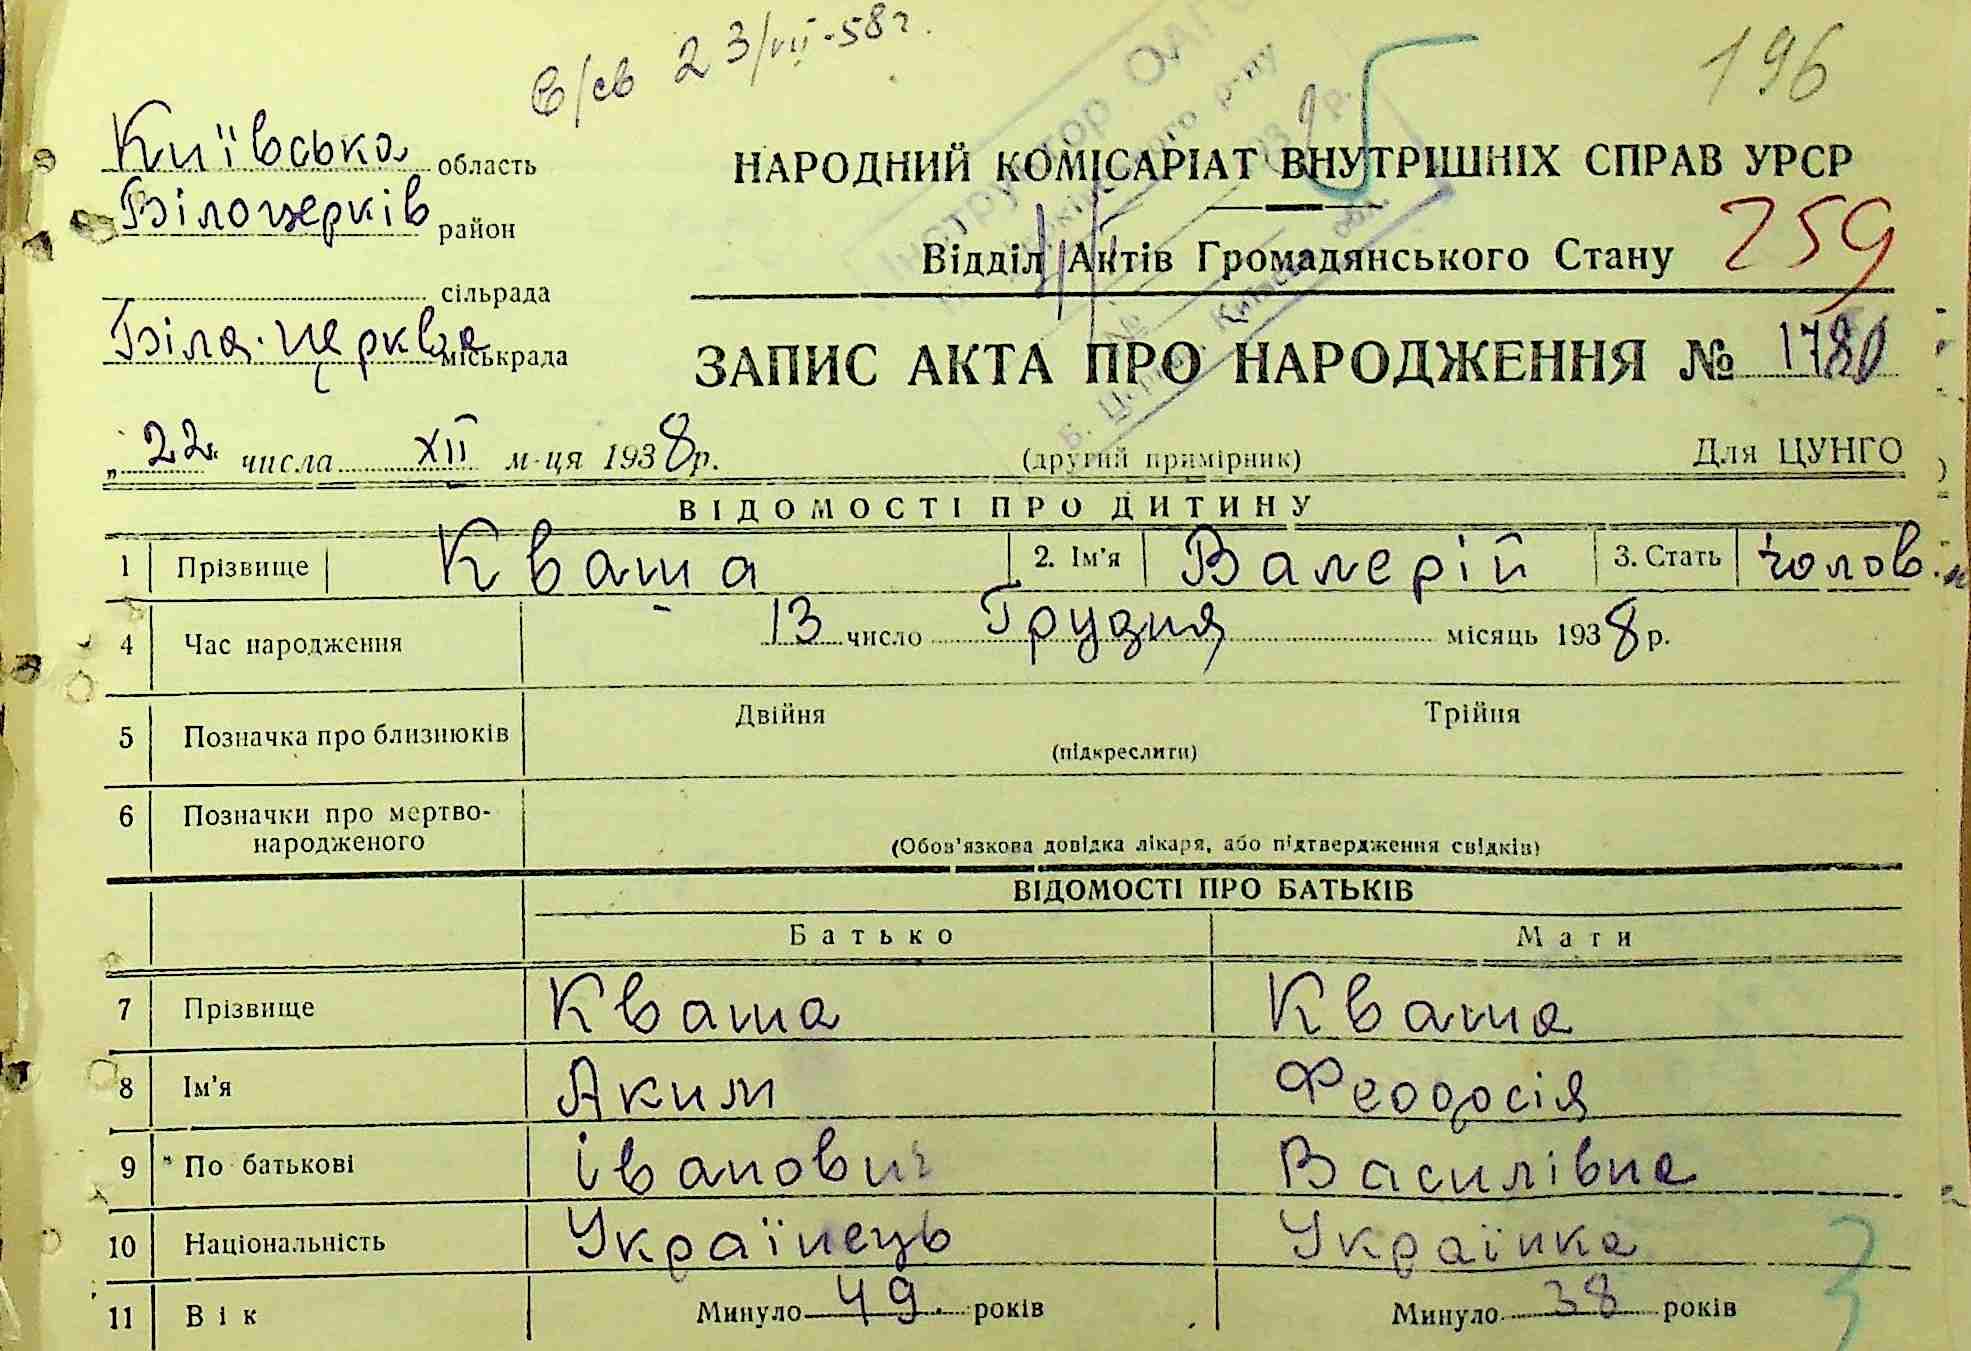 в/св 23/VII-58 г.
196
Київська область
Білоцерків район
сільрада
Біла-Церква міськрада
НАРОДНИЙ КОМІСАРІАТ ВНУТРІШНІХ СПРАВ УРСР
Відділ Актів Громадянського Стану
259
ЗАПИС АКТА ПРО НАРОДЖЕННЯ № 1780
„22" числа XII м-ця 1938 р.
(другий примірник)
Для ЦУНГО
Інструктор ОАГС
ВІДОМОСТІ ПРО ДИТИНУ
1 Прізвище Кваша 2. Ім'я Валерій 3. Стать чолов.
4 Час народження 13 число Грудня місяць 1938 р.
5 Позначка про близнюків Двійня Трійня
(підкреслити)
6 Позначки про мертво-
народженого
(Обов'язкова довідка лікаря, або підтвердження свідків)
ВІДОМОСТІ ПРО БАТЬКІВ
Батько Мати
7 Прізвище Кваша Кваша
8 Ім'я Аким Феодосія
9 По батькові Іванович Василівна
10 Національність Українець Українка
11 Вік Минуло 49 років Минуло 38 років